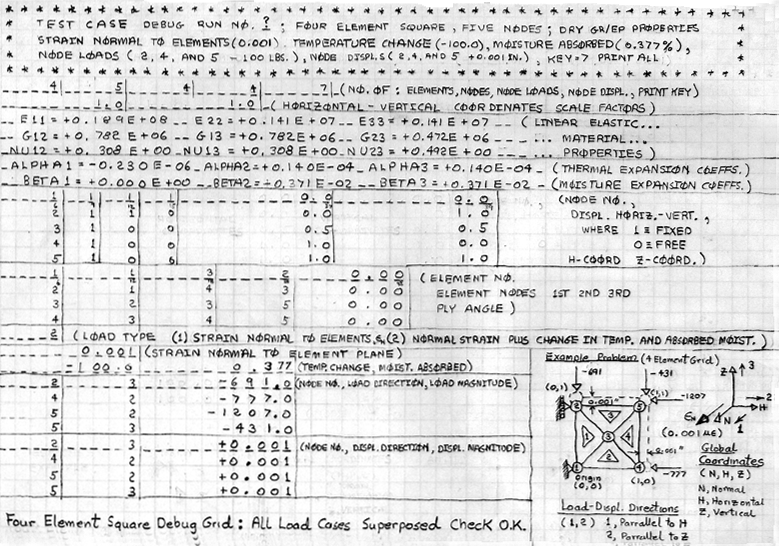 * * * * * * * * * * * * * * * * * * * * * * * * * * * * * * * * * * * *
* TEST CASE DEBUG RUN NO. ? ; FOUR ELEMENT SQUARE, FIVE NODES; DRY GR/EP PROPERTIES *
* STRAIN NORMAL TO ELEMENTS (0.001). TEMPERATURE CHANGE (-100.0), MOISTURE ABSORBED (0.377%), *
* NODE LOADS (2, 4, AND 5 - 100 LBS.), NODE DISPL.S (2, 4, AND 5 +0.001 IN.), KEY=7 PRINT ALL *
* * * * * * * * * * * * * * * * * * * * * * * * * * * * * * * * * * * *
4 5 4 4 7 (NO. OF: ELEMENTS, NODES, NODE LOADS, NODE DISPL., PRINT KEY)
1.0 1.0 (HORIZONTAL - VERTICAL COORDINATES SCALE FACTORS)
E11=+0.189E+08 E22=+0.141E+07 E33=+0.141E+07 (LINEAR ELASTIC...
G12=+0.782E+06 G13=+0.782E+06 G23=+0.472E+06 ... MATERIAL...
NU12=+0.308E+00 NU13=+0.308E+00 NU23=+0.492E+00 ... PROPERTIES)
ALPHA1=-0.230E-06 ALPHA2=+0.140E-04 ALPHA3=+0.140E-04 (THERMAL EXPANSION COEFFS.)
BETA1=+0.000E+00 BETA2=+0.371E-02 BETA3=+0.371E-02 (MOISTURE EXPANSION COEFFS.)
1 1 1 0.0 0.0 (NODE NO.,
2 1 0 0.0 1.0 DISPL. HORIZ.-VERT.,
3 0 0 0.5 0.5 WHERE 1 ≡ FIXED
4 0 0 1.0 0.0 0 ≡ FREE
5 0 0 1.0 1.0 H-COORD Z-COORD.)
1 1 3 2 0.00 (ELEMENT NO.
2 1 4 3 0.00 ELEMENT NODES 1ST 2ND 3RD
3 2 3 5 0.00 PLY ANGLE)
4 3 4 5 0.00
2 (LOAD TYPE (1) STRAIN NORMAL TO ELEMENTS, & (2) NORMAL STRAIN PLUS CHANGE IN TEMP. AND ABSORBED MOIST.)
0.001 (STRAIN NORMAL TO ELEMENT PLANE)
-100.0 0.377 (TEMP. CHANGE, MOIST. ABSORBED)
2 3 -691.0 (NODE NO., LOAD DIRECTION, LOAD MAGNITUDE)
4 2 -777.0
5 2 -1207.0
5 3 -431.0
2 3 +0.001 (NODE NO., DISPL. DIRECTION, DISPL. MAGNITUDE)
4 2 +0.001
5 2 +0.001
5 3 +0.001
Example Problem (4 Element Grid)
-691 -431
(0,1) 0.001" (1,1) -1207
2 5
3
1 3 4
2
1 4
0.001"
-777
Origin
(0,0) (1,0)
Z 3
2
H
N 1
(0.001 µE)
Global
Coordinates
(N, H, Z)
N, Normal
H, Horizontal
Z, Vertical
Load-Displ. Directions
(1,2) 1, Parrallel to H
2, Parrallel to Z
Four Element Square Debug Grid: All Load Cases Superposed Check O.K.